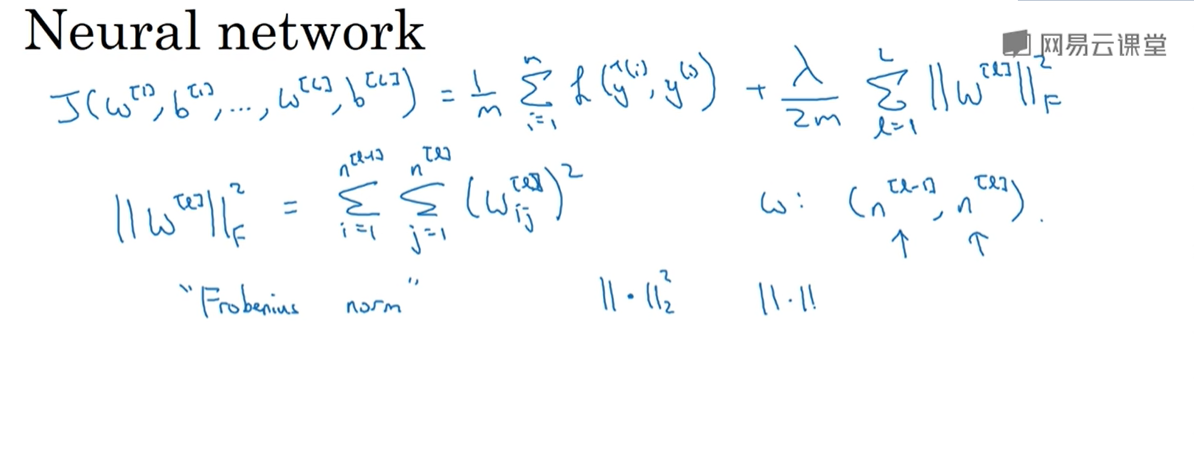 Neural network
网易云课堂
J(w^[1], b^[1], ..., w^[L], b^[L]) = 1/m ∑_{i=1}^{n} L(ŷ^(i), y^(i)) + λ/2m ∑_{l=1}^{L} ||w^[l]||_F^2
||w^[l]||_F^2 = ∑_{i=1}^{n^[l-1]} ∑_{j=1}^{n^[l]} (w_ij^[l])^2 w: (n^[l-1], n^[l]).
↑ ↑
"Frobenius norm" ||·||_2^2 ||·||